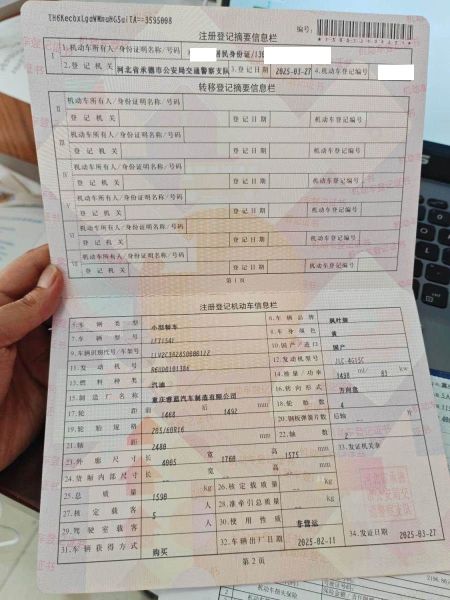 注册登记摘要信息栏
编号:
Ⅰ 1.机动车所有人/身份证明名称/号码 居民身份证/13
2.登记机关 河北省承德市公安局交通警察支队 3.登记日期 2025-03-27 4.机动车登记编号
转移登记摘要信息栏
Ⅱ 机动车所有人/身份证明名称/号码
登记机关 登记日期 机动车登记编号
Ⅲ 机动车所有人/身份证明名称/号码
登记机关 登记日期 机动车登记编号
Ⅳ 机动车所有人/身份证明名称/号码
登记机关 登记日期 机动车登记编号
Ⅴ 机动车所有人/身份证明名称/号码
登记机关 登记日期 机动车登记编号
Ⅵ 机动车所有人/身份证明名称/号码
登记机关 登记日期 机动车登记编号
Ⅶ 机动车所有人/身份证明名称/号码
登记机关 登记日期 机动车登记编号
第1页
注册登记机动车信息栏
5.车辆类型 小型轿车 6.车辆品牌 枫叶牌
7.车辆型号 8.车身颜色 黄
9.车辆识别代号/车架号 10.国产/进口 国产
11.发动机号 12.发动机型号 JLC-4G15C
13.燃料种类 汽油 14.排量/功率 ml/ 83 kw
15.制造厂名称 重庆睿蓝汽车制造有限公司 16.转向形式 方向盘
17.轮距 前 1468 后 1492 mm 18.轮胎数
19.轮胎规格 205/60R16 20.钢板弹簧片数 后轴 片
21.轴距 2480 mm 22.轴数 2
23.外廓尺寸 长 4005 宽 1760 高 1575 mm 33.发证机关章
24.货厢内部尺寸 长 宽 高 mm
25.总质量 1590 kg 26.核定载质量 kg
27.核定载客 5 人 28.准牵引总质量 kg
29.驾驶室载客 人 30.使用性质 非营运
31.车辆获得方式 购买 32.车辆出厂日期 2025-02-11 34.发证日期 2025-03-27
第2页